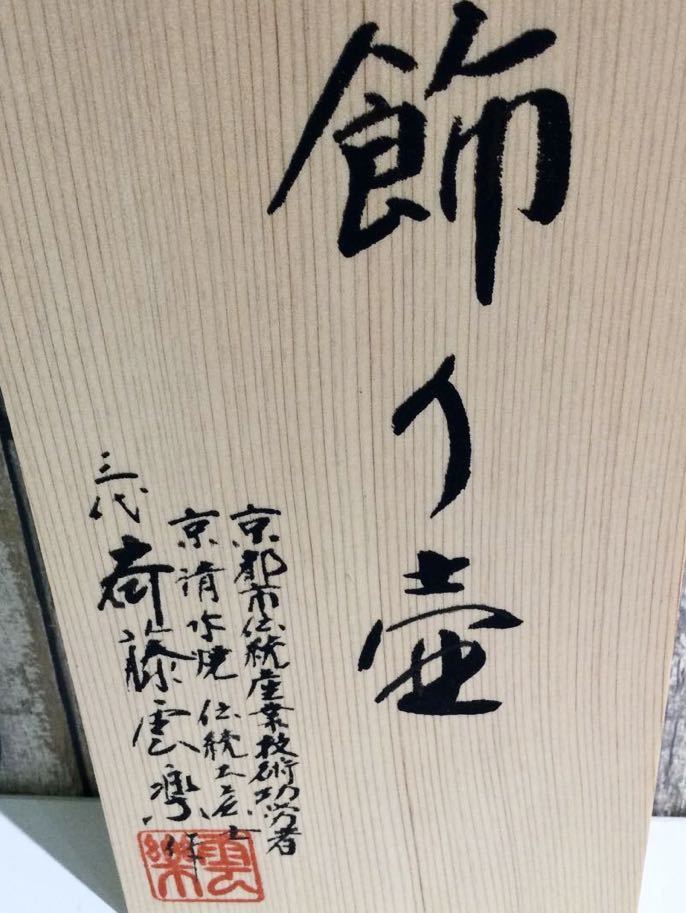 飾り壺
京都市伝統産業技術功労者
京清水焼 伝統工芸士
三代 斎藤雲楽作
雲楽